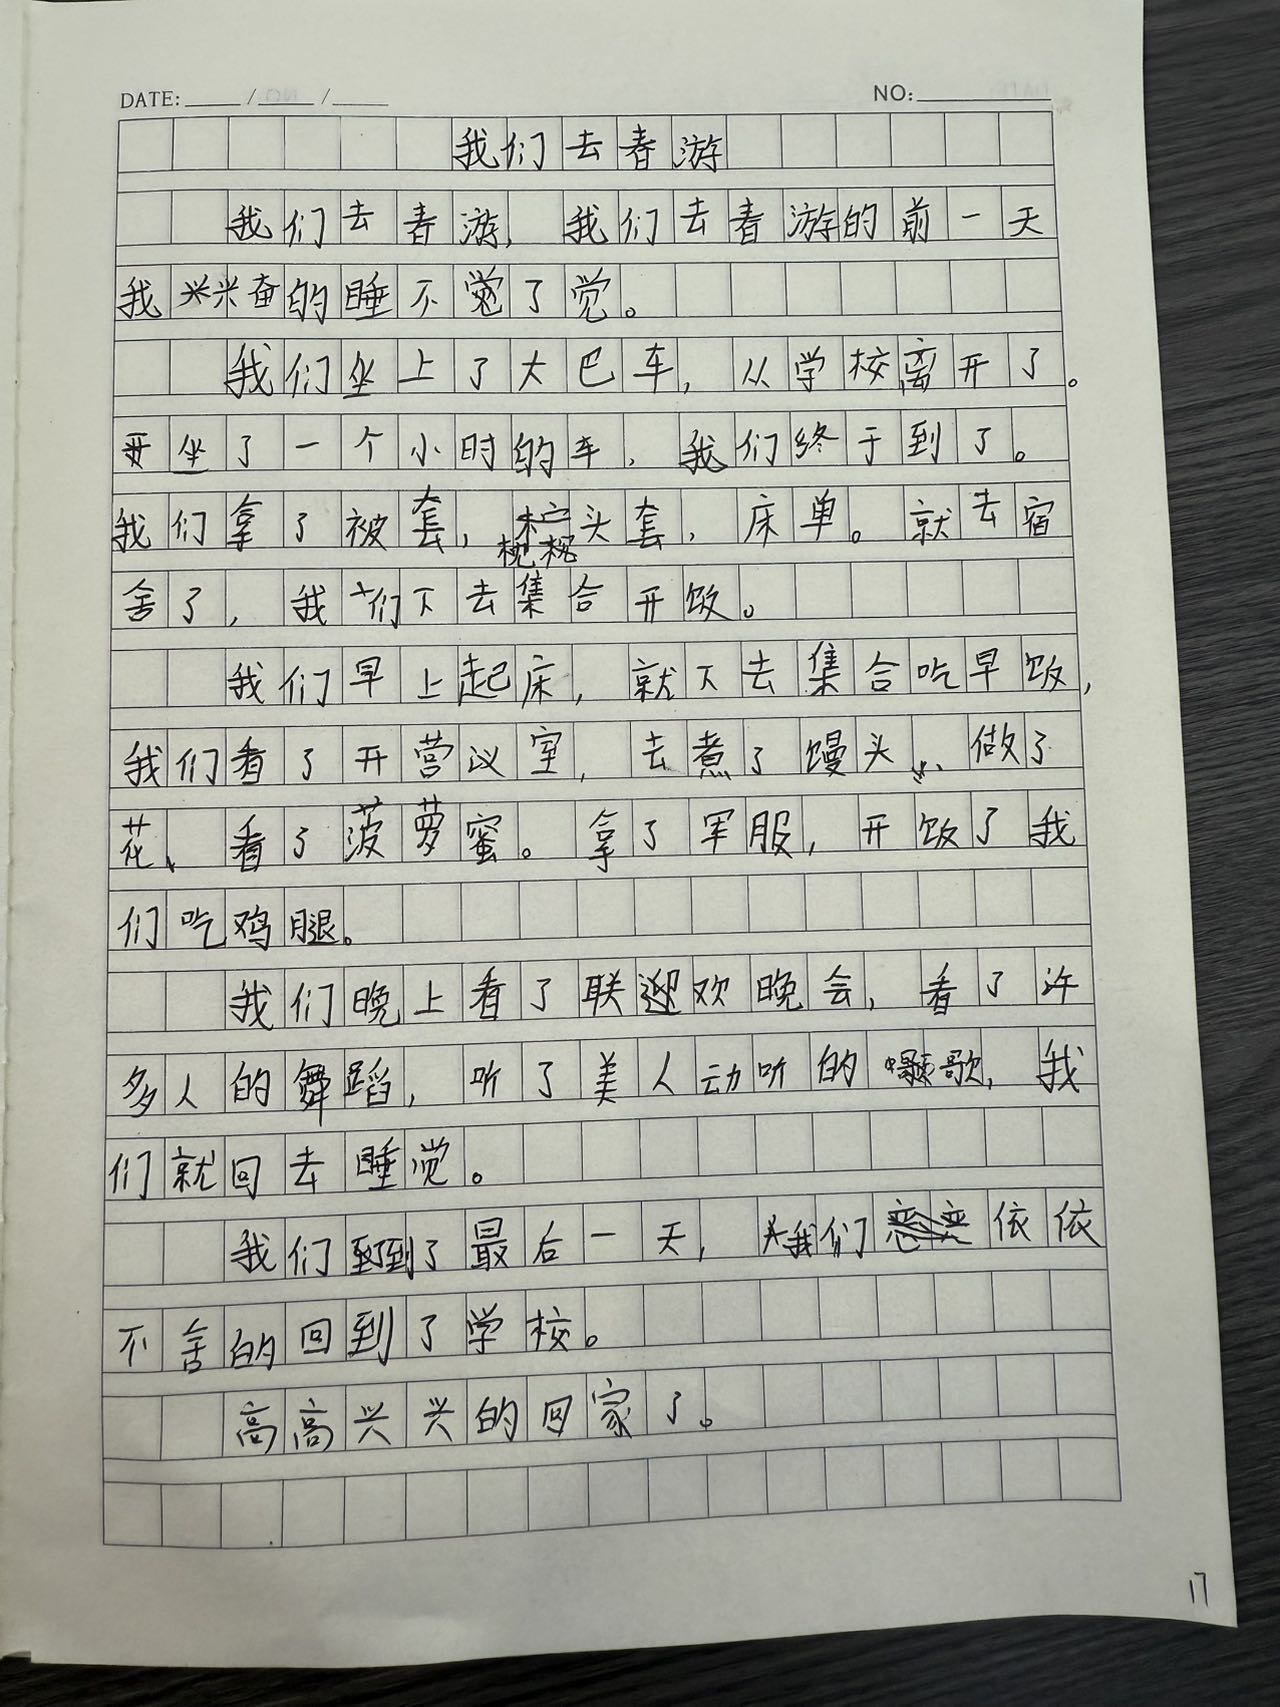 DATE: / / NO:
我们去春游
我们去春游，我们去春游的前一天
我奋的睡不觉了觉。
我们坐上了大巴车，从学校离开了。
坐了一个小时的车，我们终于到了。
我们拿了被套，枕头套，床单。就去宿
舍了，我们下去集合开饭。
我们早上起床，就下去集合吃早饭，
我们看了开营议室，去煮了馒头、做了
花、看了菠萝蜜。拿了军服，开饭了我
们吃鸡腿。
我们晚上看了联迎欢晚会，看了许
多人的舞蹈，听了美人动听的歌，我
们就回去睡觉。
我们到了最后一天，我们依依
不舍的回到了学校。
高高兴兴的回家了。
17